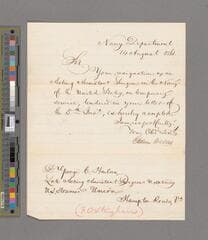 Navy Department
14 August 1861
Sir,
Your resignation as an
Acting Assistant Surgeon in the Navy
of the United States, on temporary
service, tendered in your letter of
the 5th Inst., is hereby accepted
I am respectfully
Your Obt. Servt.
Gideon Welles
Dr. George C.
Late Acting Assistant Surgeon U.S. Navy
U.S. Steamer Union
Hampton Roads Va